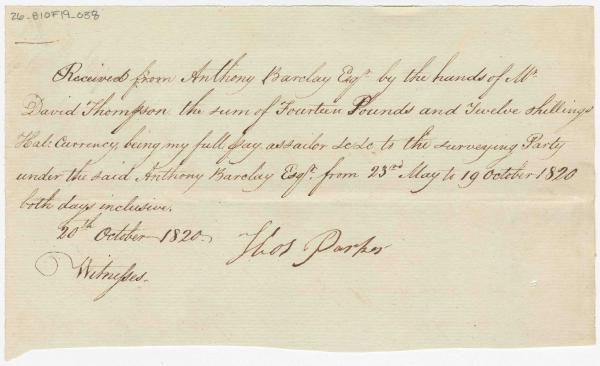 26-B10F19-038
Received from Anthony Barclay Esqr. by the hands of Mr.
David Thompson the sum of Fourteen Pounds and Twelve shillings
Hal: Currency, being my full pay as sailor &c &c to the surveying Party
under the said Anthony Barclay Esqr. from 23rd May to 19 October 1820
both days inclusive.
20th October 1820.
Thos Parker
Witnesses.